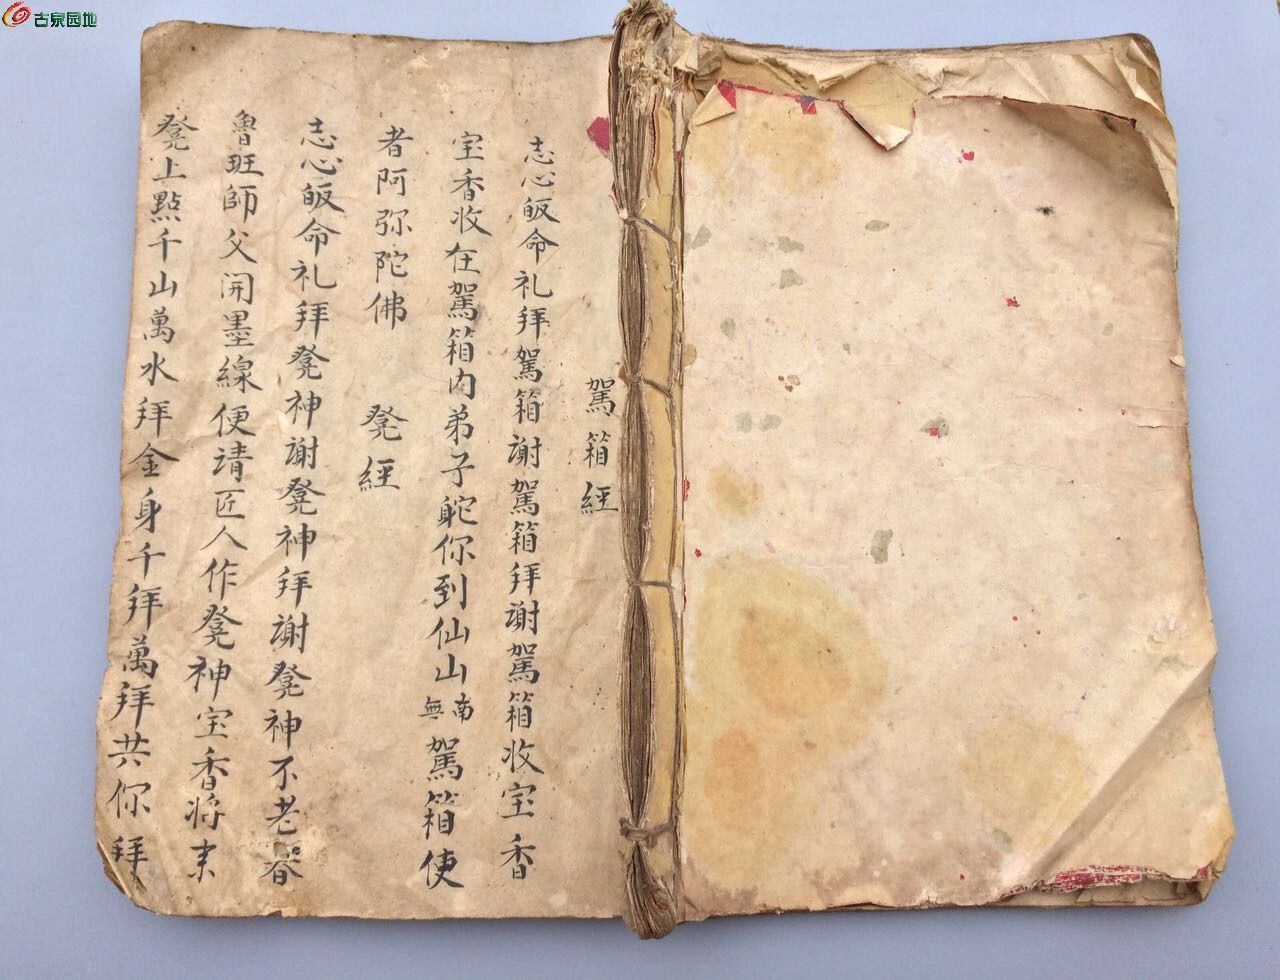 古泉园地
駕箱經
志心皈命礼拜駕箱謝駕箱拜謝駕箱收宝香
宝香收在駕箱内弟子駝你到仙山南無駕箱使
者阿弥陀佛 凳經
志心皈命礼拜凳神謝凳神拜謝凳神不老春
魯班師父開墨線便請匠人作凳神宝香將来
凳上點千山萬水拜金身千拜萬拜共你拜